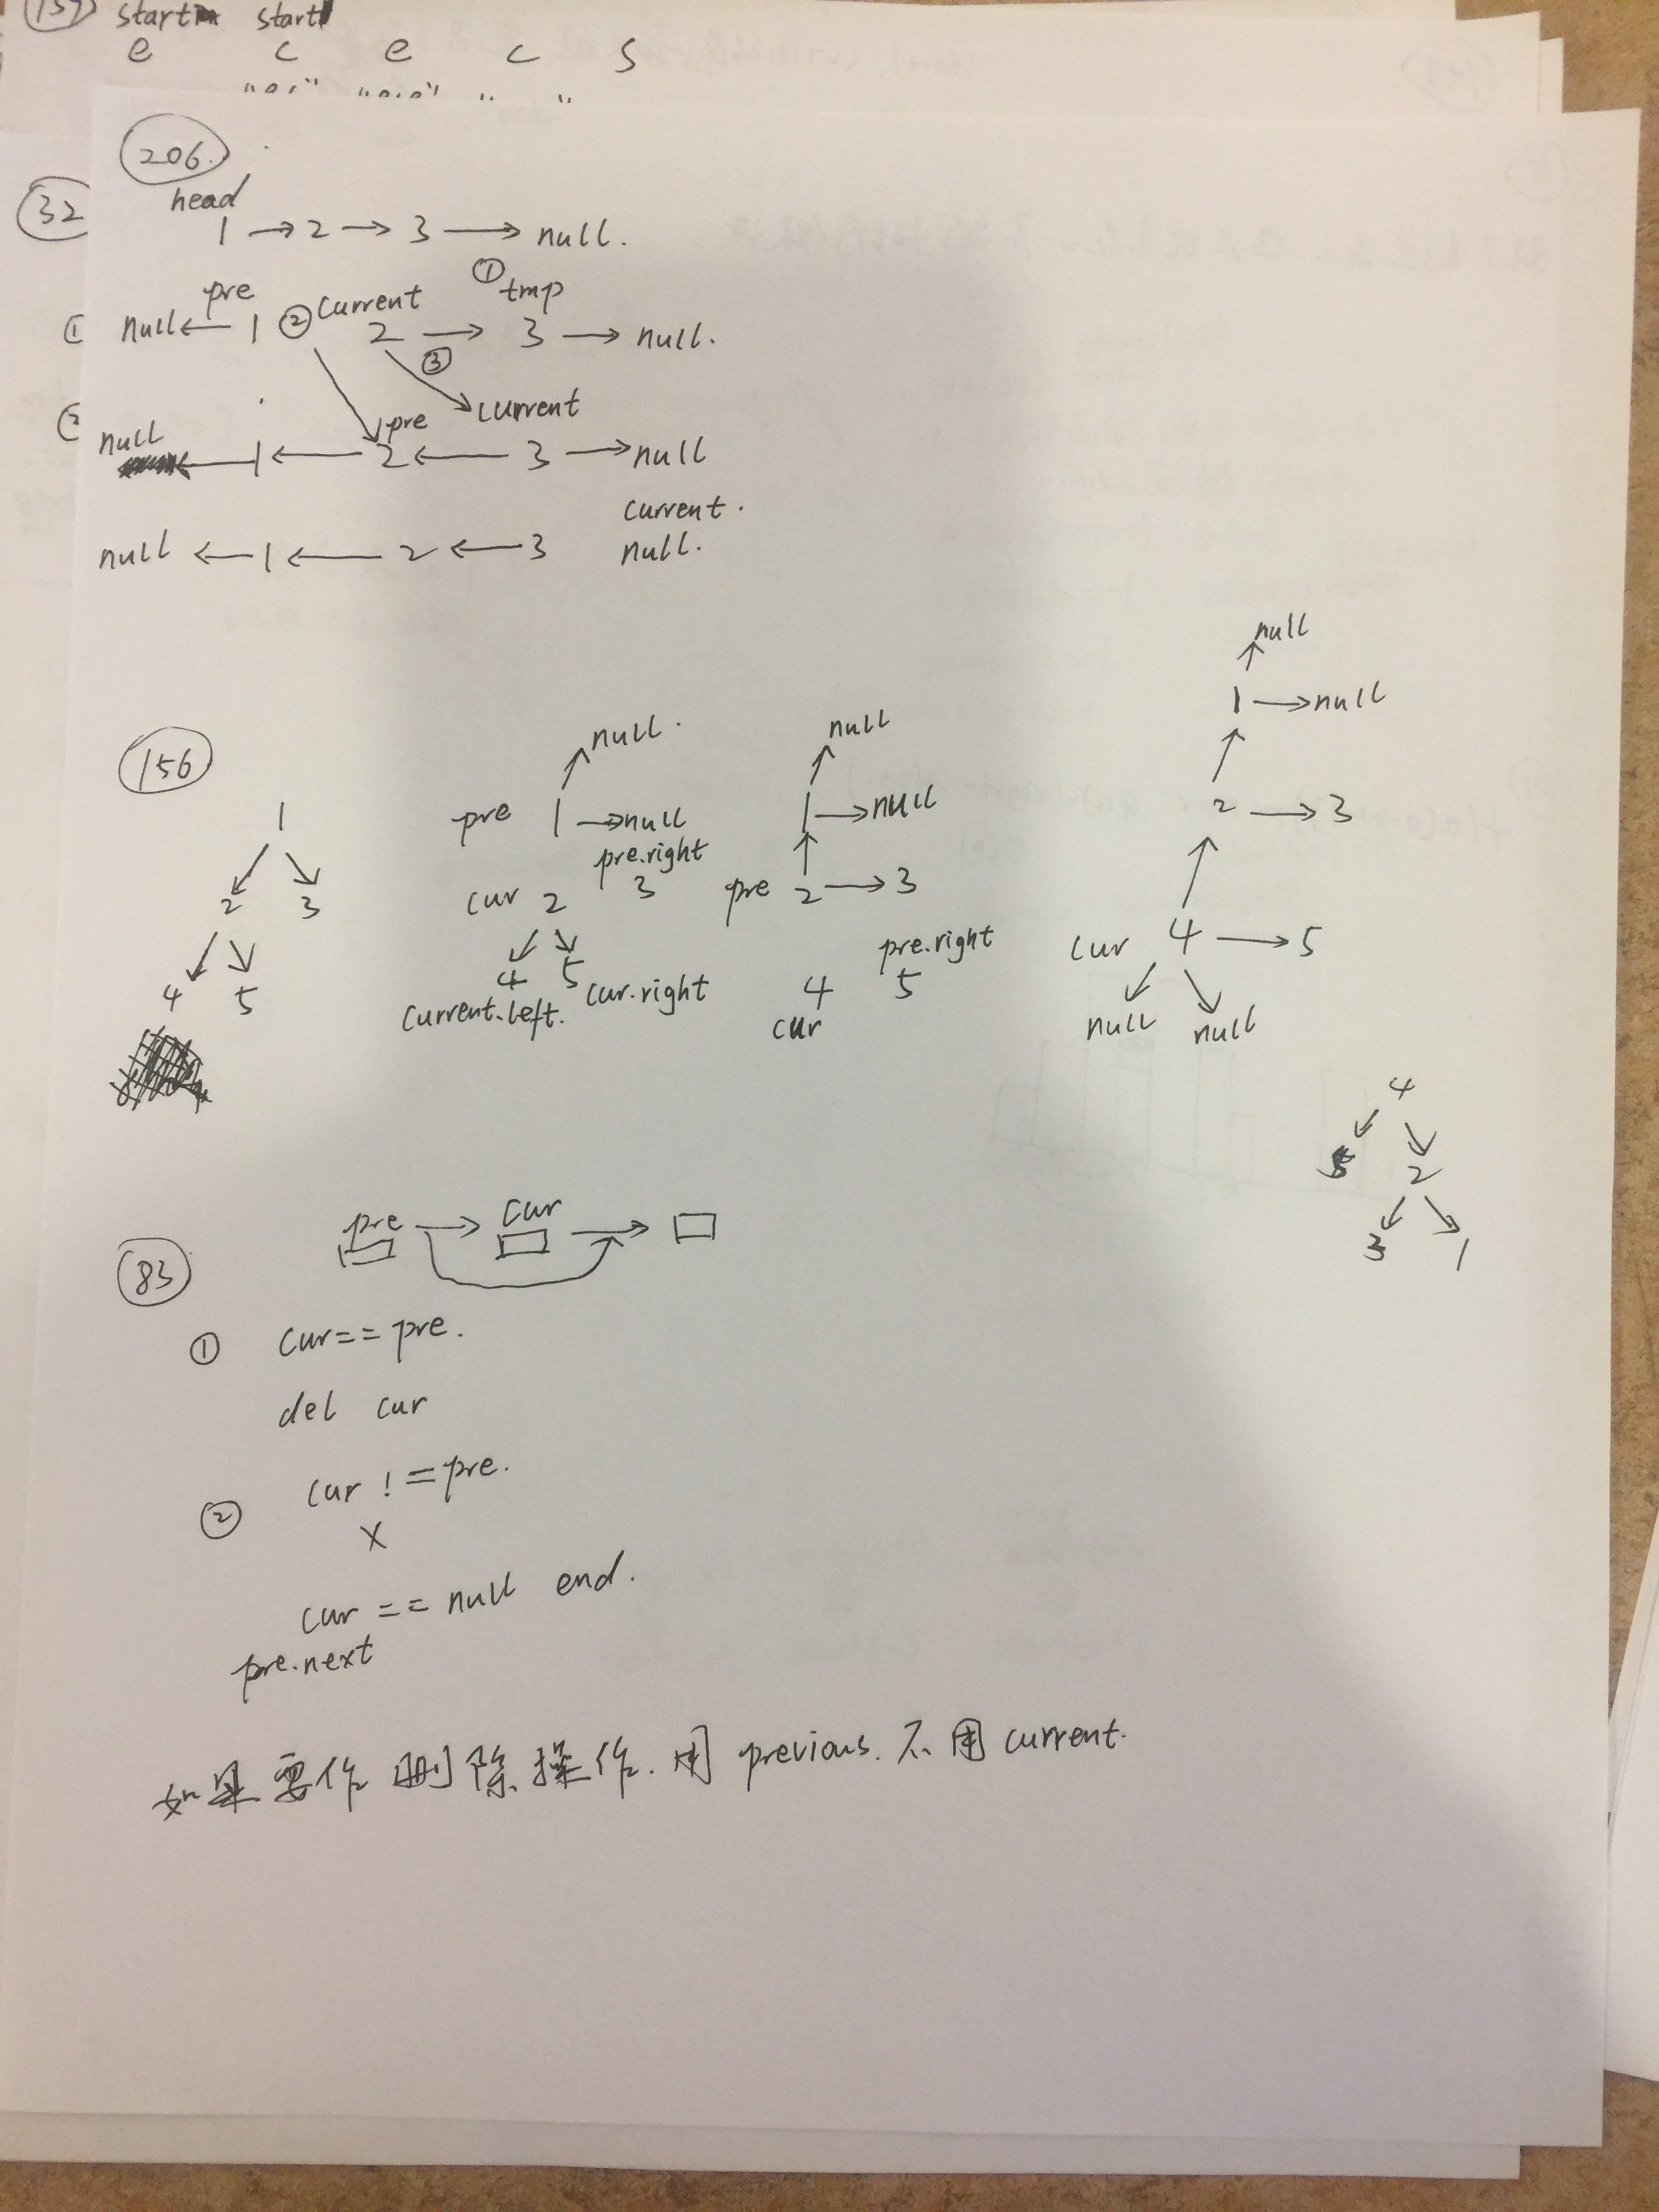 159 start start
e c e c s
32
206.
head
1 → 2 → 3 → null.
① tmp
pre ② current
① null ← 1 2 → 3 → null.
③
current
pre
null
← 1 ← 2 ← 3 → null
current.
null ← 1 ← 2 ← 3 null.
156
1
2 3
4 5
null.
pre 1 → null
pre.right
cur 2 3
4 5
current.left. cur.right
null
1 → null
pre 2 → 3
pre.right
4 5
cur
null
1 → null
2 → 3
cur 4 → 5
null null
4
5 2
3 1
83
pre → cur →
① cur == pre.
del cur
② cur != pre.
X
cur == null end.
pre.next
如果要作删除操作.用 previous.不用 current.